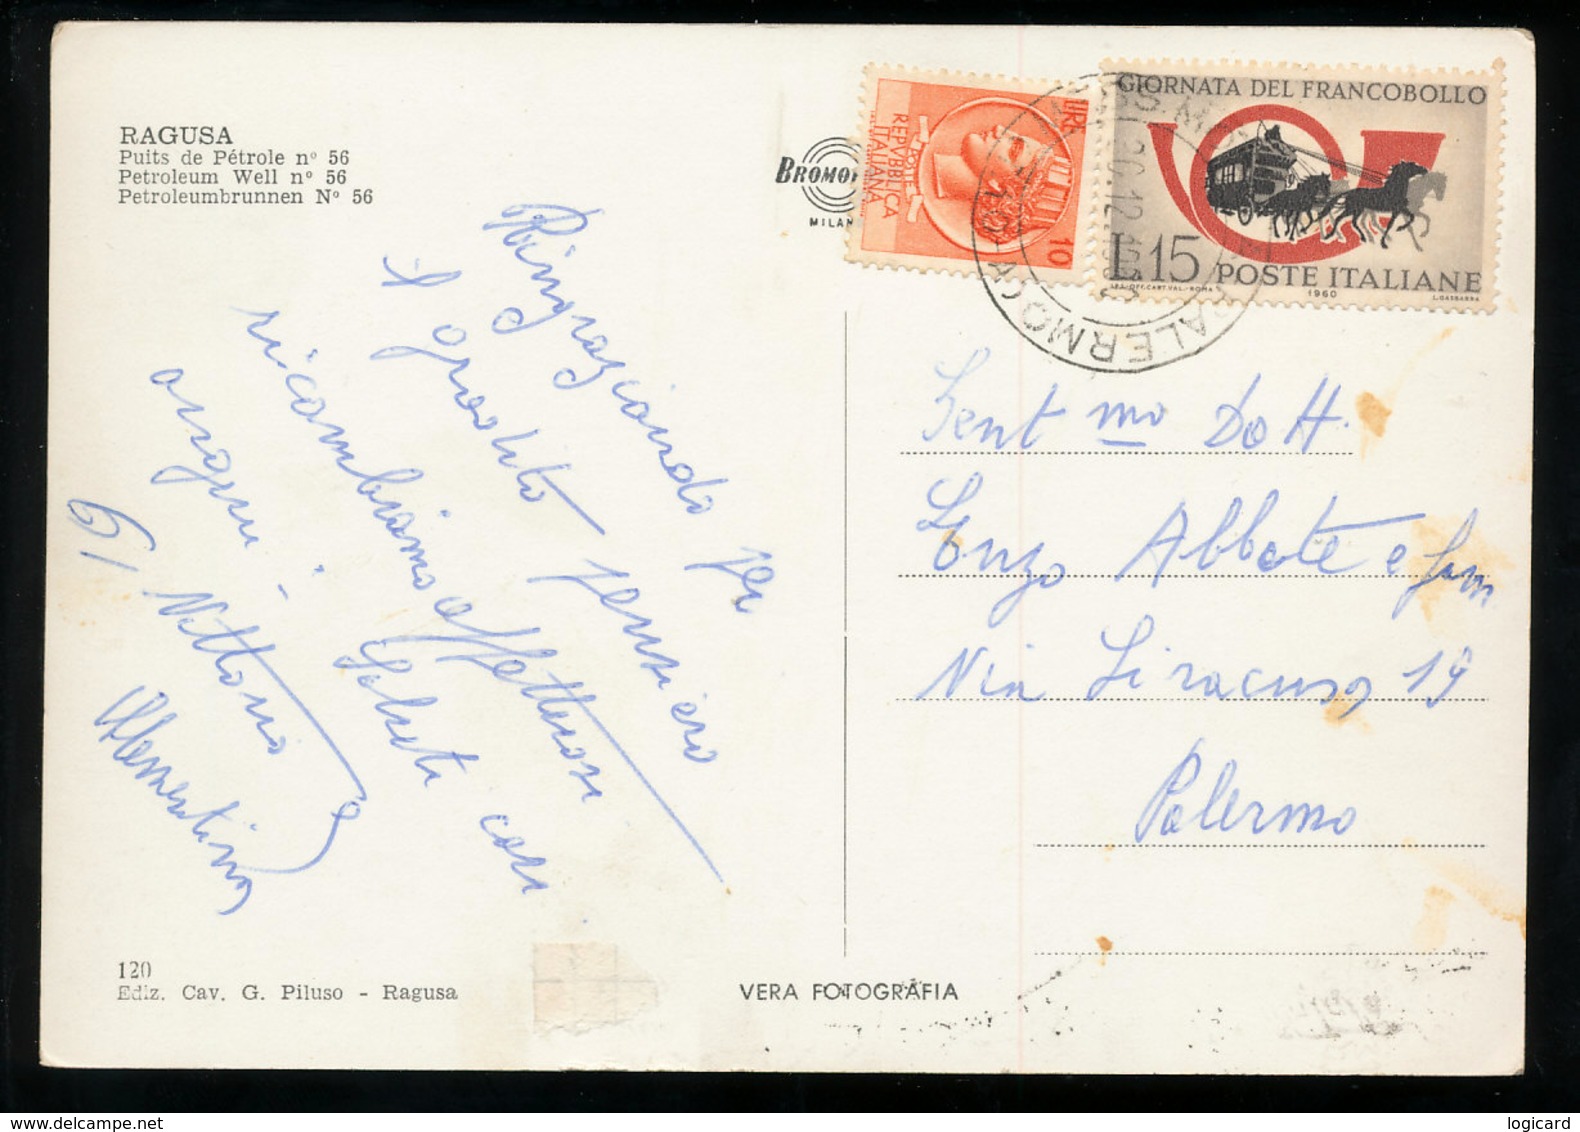 RAGUSA
Puits de Pétrole n° 56
Petroleum Well n° 56
Petroleumbrunnen N° 56
BROMOF
MILAN
LIRE
REPVBBLICA
ITALIANA
POSTE
10
GIORNATA DEL FRANCOBOLLO
L.15 POSTE ITALIANE
I.P.S.-OFF.CART.VAL.-ROMA 1960 L.GASBARRA
PALERMO
20.12
Ringraziando per
il gradito pensiero
ricambiamo affettuosi
saluti cari
auguri
Vittorio e
Clementina
61
Gent mo Dott.
Enzo Abbate e fam
Via Siracusa 19
Palermo
120
Ediz. Cav. G. Piluso - Ragusa
VERA FOTOGRAFIA
logicard